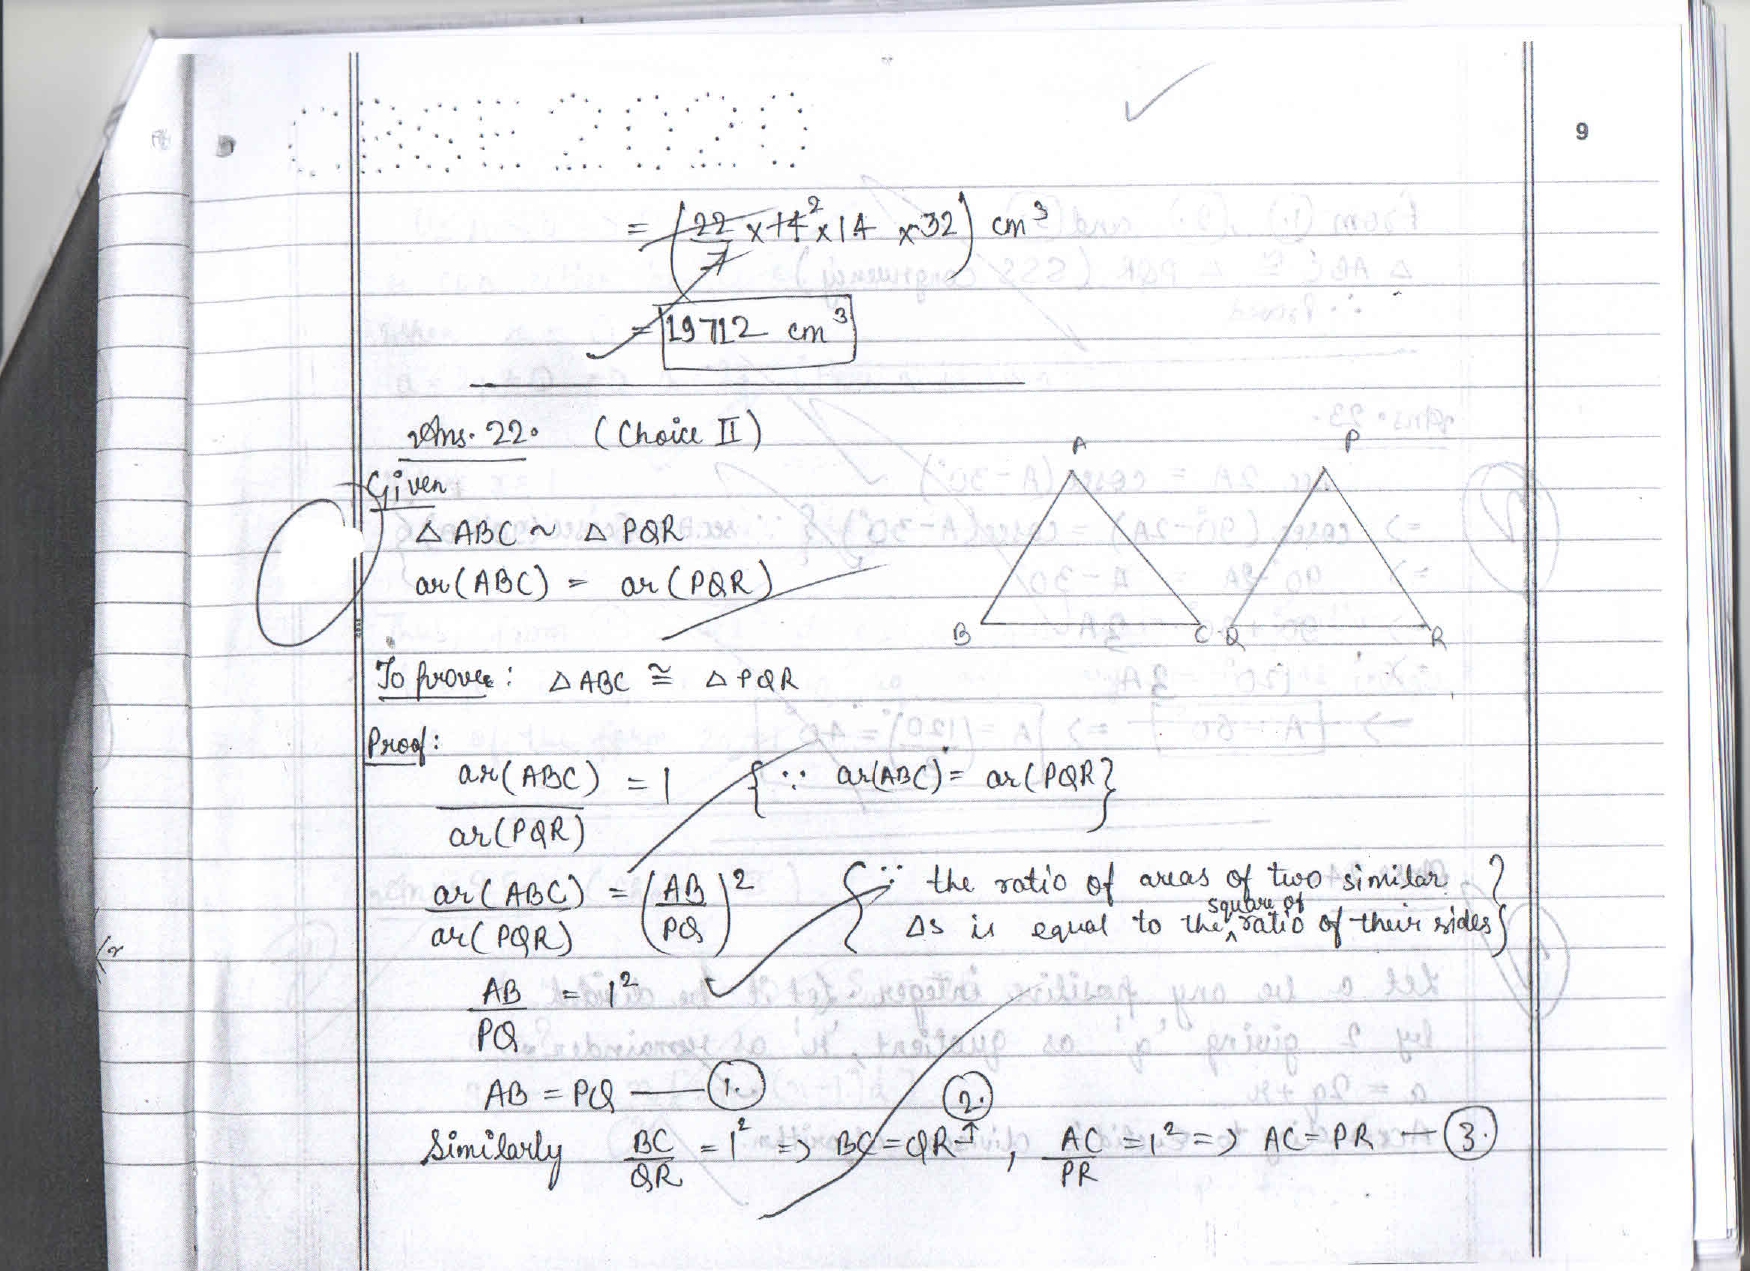 CBSE 2020
9
= (22/7 × 14² × 14 × 32) cm³
= 19712 cm³
Ans. 22. (Choice II)
Given
△ ABC ~ △ PQR
ar(ABC) = ar(PQR)
A
B
C
P
Q
R
To prove: △ ABC ≅ △ PQR
Proof:
ar(ABC)/ar(PQR) = 1 {∵ ar(ABC) = ar(PQR}
ar(ABC)/ar(PQR) = (AB/PQ)² {∵ the ratio of areas of two similar
△s is equal to the square of ratio of their sides}
AB/PQ = 1²
AB = PQ — 1.
Similarly BC/QR = 1² => BC = QR → 2. , AC/PR = 1² => AC = PR — 3.